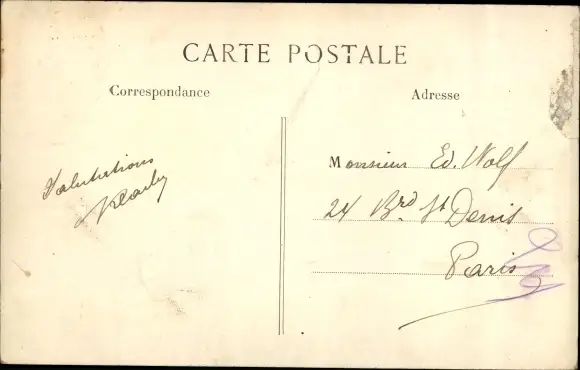 CARTE POSTALE
Correspondance
Adresse
Salutations
Monsieur Ed. Wolf
24 Brd St Denis
Paris